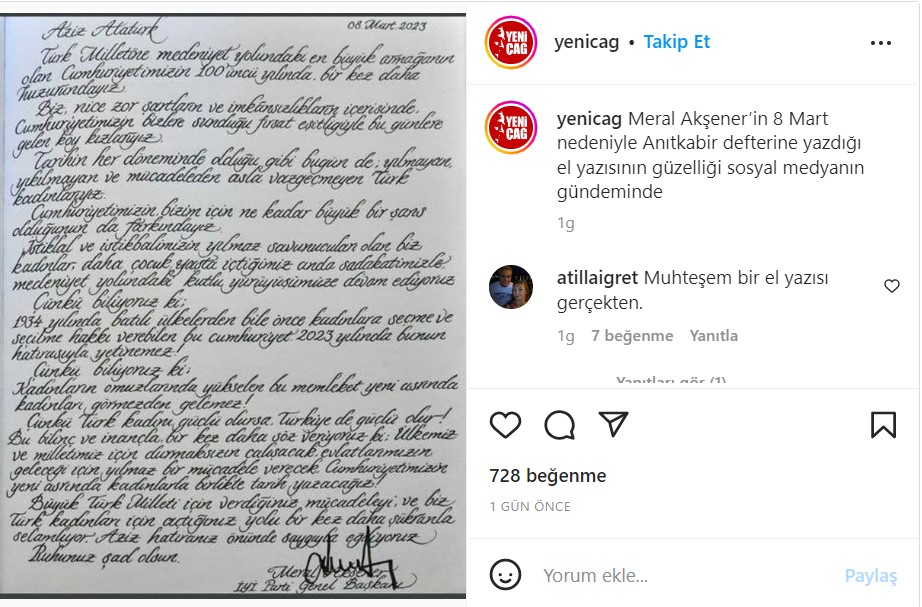 08. Mart. 2023
Aziz Atatürk
Türk Milletine medeniyet yolundaki en büyük armağanın
olan Cumhuriyetimizin 100'üncü yılında, bir kez daha
huzurundayız.
Biz, nice zor şartların ve imkânsızlıkların içerisinde,
Cumhuriyetimizin bizlere sunduğu fırsat eşitliğiyle bu günlere
gelen köy kızlarıyız.
Tarihin her döneminde olduğu gibi bugün de; yılmayan,
yıkılmayan ve mücadeleden asla vazgeçmeyen Türk
kadınlarıyız.
Cumhuriyetimizin, bizim için ne kadar büyük bir şans
olduğunun da farkındayız.
İstiklal ve istikbalimizin yılmaz savunucuları olan biz
kadınlar, daha çocuk yaşta içtiğimiz anda sadakatimizle,
medeniyet yolundaki kutlu yürüyüşümüze devam ediyoruz
Çünkü biliyoruz ki;
1934 yılında batılı ülkelerden bile önce kadınlara seçme ve
seçilme hakkı verebilen bu cumhuriyet 2023 yılında bunun
hatırasıyla yetinemez!
Çünkü biliyoruz ki;
Kadınların omuzlarında yükselen bu memleket yeni asrında
kadınları görmezden gelemez!
Çünkü Türk kadını güçlü olursa, Türkiye de güçlü olur!
Bu bilinç ve inançla, bir kez daha söz veriyoruz ki; Ülkemiz
ve milletimiz için durmaksızın çalışacak evlatlarımızın
geleceği için, yılmaz bir mücadele verecek Cumhuriyetimizin
yeni asrında kadınlarla birlikte tarih yazacağız!
Büyük Türk Milleti için verdiğiniz mücadeleyi, ve biz
Türk kadınları için açtığınız yolu bir kez daha şükranla
selamlıyor, Aziz hatıranız önünde saygıyla eğiliyoruz
Ruhunuz şad olsun.
Meral Akşener
İYİ Parti Genel Başkanı
YENİ
ÇAĞ
yenicag • Takip Et
YENİ
ÇAĞ
yenicag Meral Akşener'in 8 Mart
nedeniyle Anıtkabir defterine yazdığı
el yazısının güzelliği sosyal medyanın
gündeminde
1g
atillaigret Muhteşem bir el yazısı
gerçekten.
1g 7 beğenme Yanıtla
Yanıtları gör (1)
728 beğenme
1 GÜN ÖNCE
Yorum ekle...
Paylaş